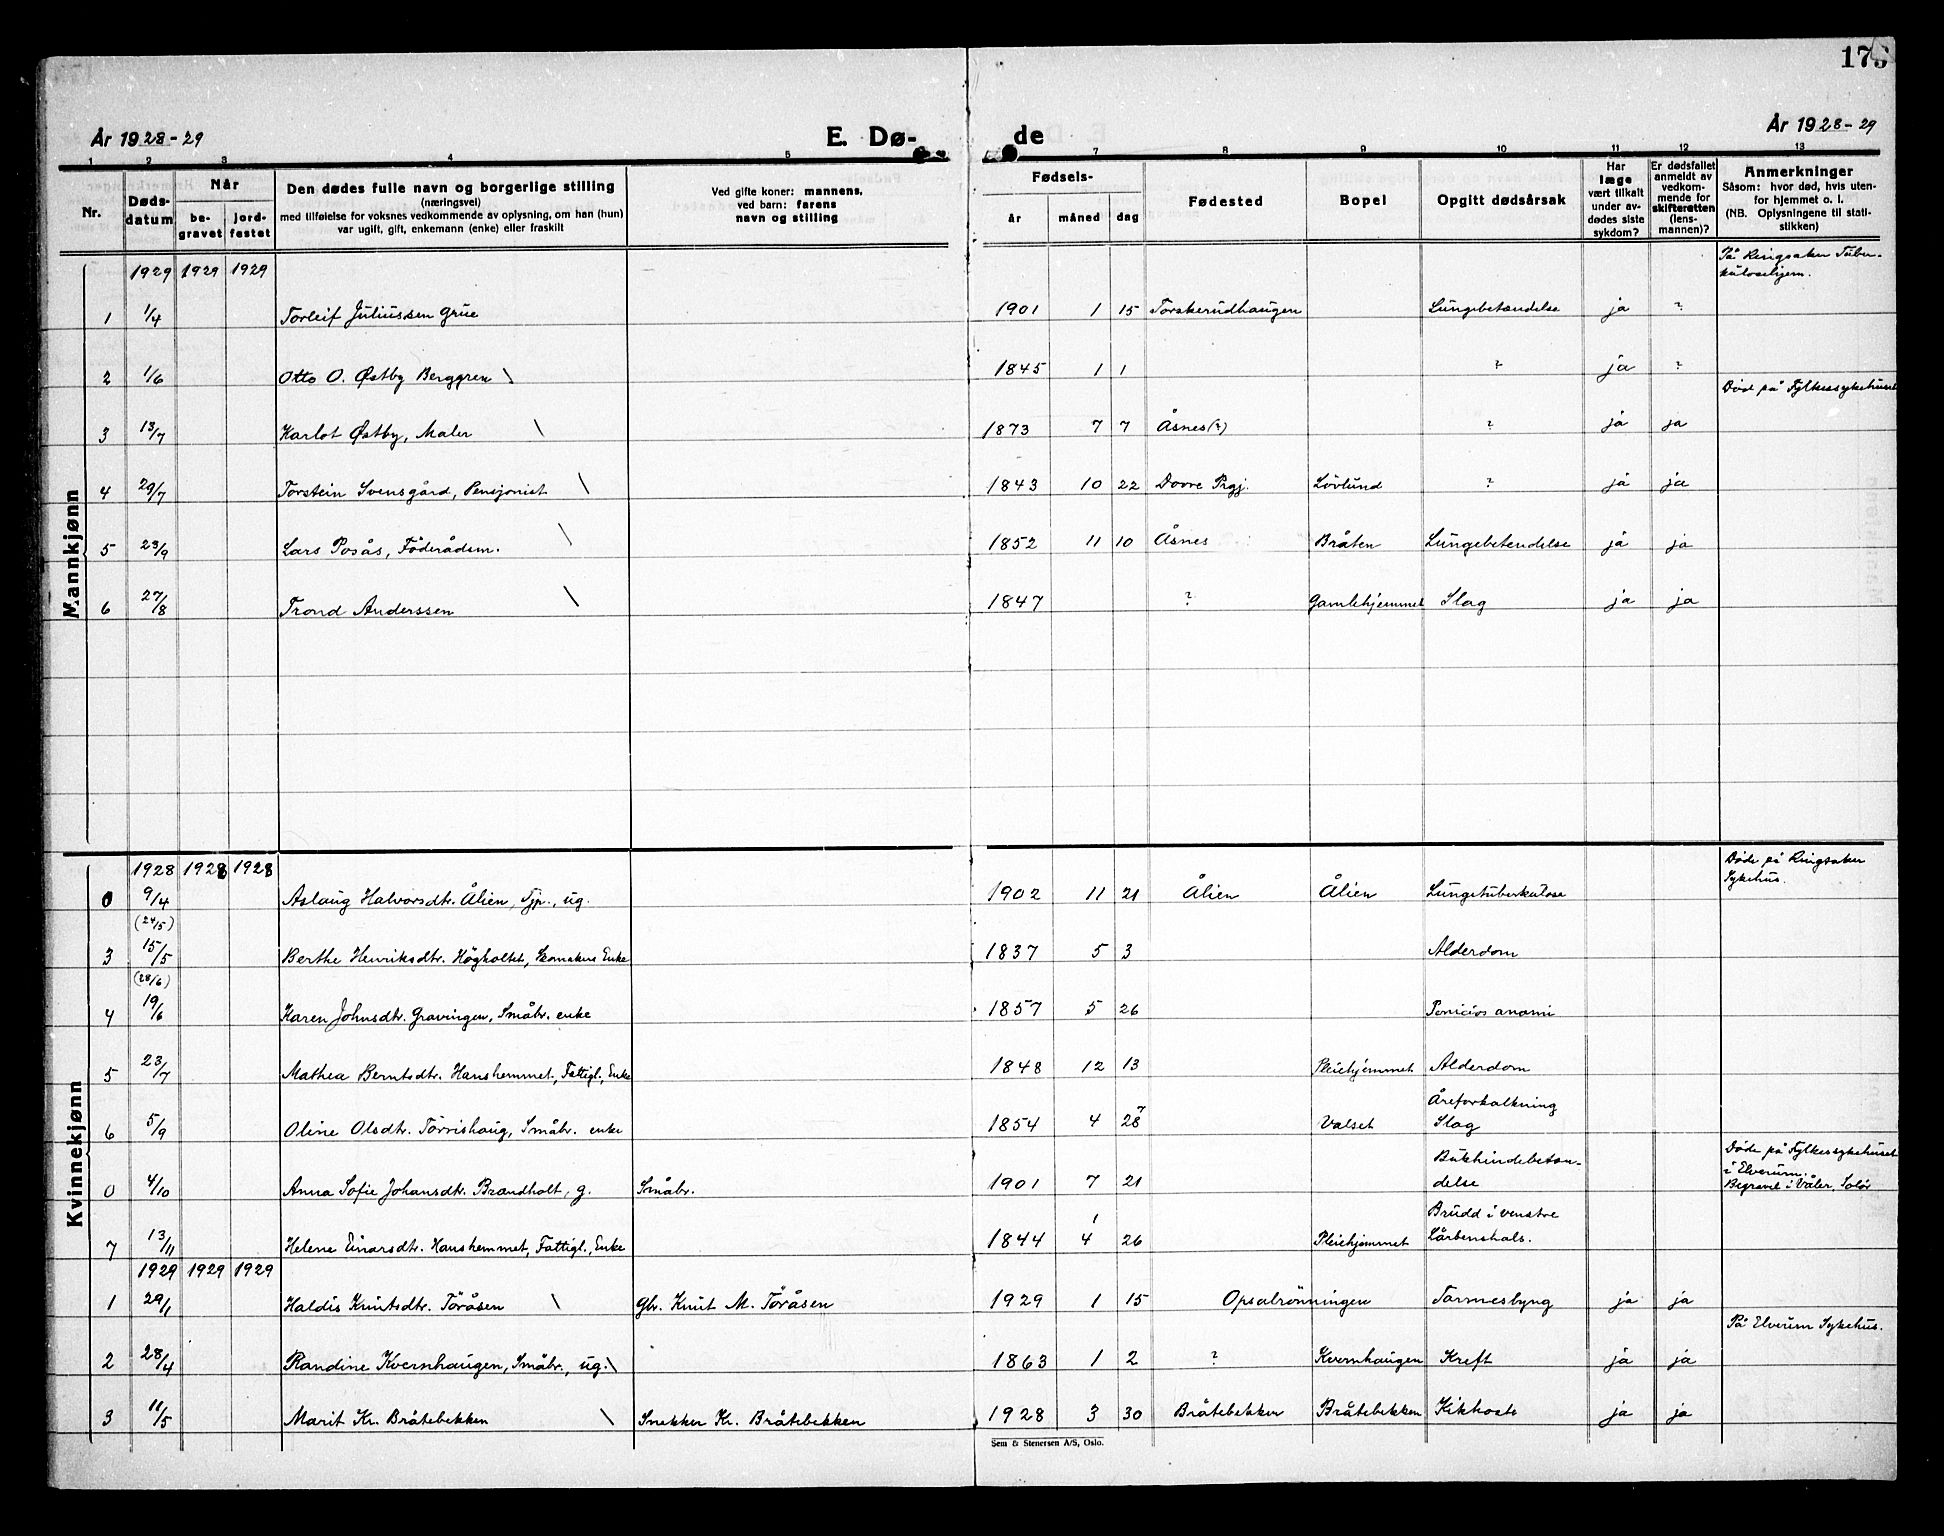 176
År 1928-29
E. Dø-de
År 1928-29
1 2 3 4 5 7 8 9 10 11 12 13
Nr.
Døds-datum
Når
be-gravet
jord-festet
Den dødes fulle navn og borgerlige stilling
(næringsvei)
med tilføielse for voksnes vedkommende av oplysning, om han (hun)
var ugift, gift, enkemann (enke) eller fraskilt
Ved gifte koner: mannens,
ved barn: farens
navn og stilling
Fødsels-
år måned dag
Fødested
Bopel
Opgitt dødsårsak
Har læge vært tilkalt under av-dødes siste sykdom?
Er dødsfallet anmeldt av vedkom-mende for skifteretten (lens-mannen)?
Anmerkninger
Såsom: hvor død, hvis uten-for hjemmet o. l.
(NB. Oplysningene til stati-stikken)
Mannkjønn
1929 1929 1929
På Ringsaker Tuber-
kulosehjem.
1 1/4 Torleif Juliussen Grue 1901 1 15 Torskerudhaugen Lungebetendelse ja ?
2 1/6 Otto O. Østby Berggren \ 1845 1 1 ? ja ?
Døde på Fylkessykehuset
3 13/7 Karlot Østby, Maler \ 1873 7 7 Åsnes (?) ? ja ja
4 29/7 Torstein Svensgård, Pensjonist \ 1843 10 22 Dovre Prgj. Lövlund ? ja ja
5 23/9 Lars Posås, Föderådsm. \ 1852 11 10 Åsnes Bråten Lungebetendelse ja ja
6 27/8 Trond Anderssen \ 1847 ? Gamlehjemmet Slag ja ja
Kvinnekjønn
1928 1928 1928
Døde på Ringsaker
Sykehus.
0 9/4 Aslaug Halvorsdtr. Ålien, Tjp., ug. 1902 11 21 Ålien Ålien Lungetuberkulose
(24/5)
3 15/5 Berthe Henriksdtr. Högholtet, Skomakers Enke 1837 5 3 Alderdom
(28/6)
4 19/6 Karen Johnsdtr. Gravingen, Småbr. enke 1857 5 26 Peniciös anæmi
5 23/7 Mathea Berntsdtr. Hanshemmet, Fattigl., Enke 1848 12 13 Pleiehjemmet Alderdom
Åreforkalkning
6 5/9 Oline Olsdtr. Törrishaug, Småbr. enke 1854 4 28 7 Valset Slag
Bukhindebeten-
delse
Døde på Fylkessykehuset
i Elverum.
Begravet i Våler, Solör
0 4/10 Anna Sofie Johansdtr. Brandholt, g. Småbr. 1901 7 21
Brudd i venstre
Lårbenshals.
7 13/11 Helene Einarsdtr. Hanshemmet, Fattigl., Enke 1844 1 4 26 Pleiehjemmet
1929 1929 1929
1 29/1 Haldis Knutsdtr. Töråsen \ Gbr. Knut M. Töråsen 1929 1 15 Opsalrönningen Tarmesbyng ja ja
På Elverum Sykehus.
2 28/4 Randine Kvernhaugen, Småbr., ug. \ 1863 1 2 ? Kvernhaugen Kreft ja ja
3 11/5 Marit Kr. Bråtebekken \ Snekker Kr. Bråtebekken 1928 3 30 Bråtebekken Bråtebekken Kikhoste ja ja
Sem & Stenersen A/S, Oslo.